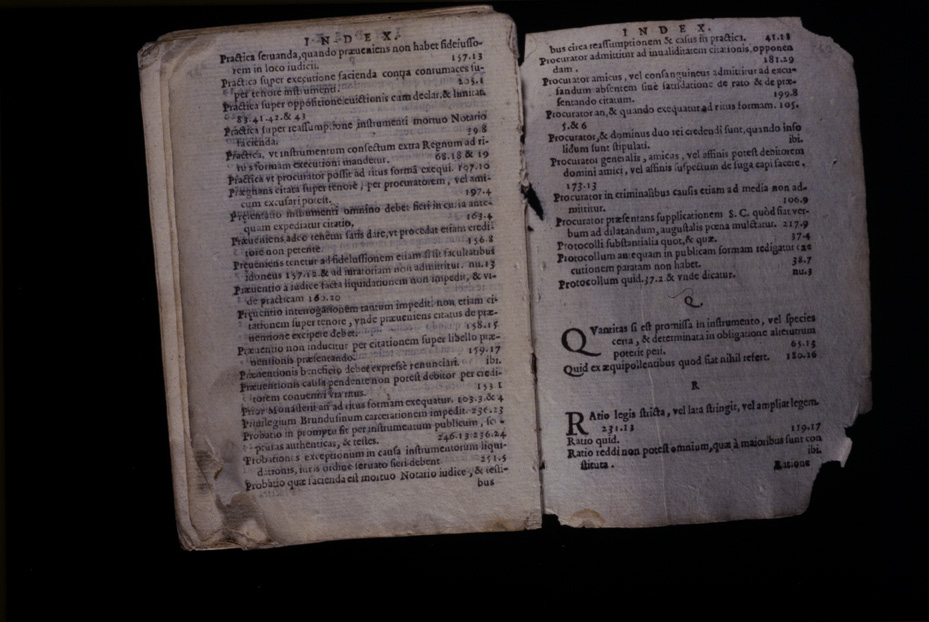 INDEX.
Practica seruanda, quando præueniens non habet fideiusso-
rem in loco iudicii. 157.13
Practica super executione facienda contra contumaces su-
per tenore instrumenti. 205.1
Practica super oppositione euictionis cum declar. & limitat.
83.41.42. & 43
Practica super reassumptione instrumenti mortuo Notario
facienda. 39.8
Practica, vt instrumentum confectum extra Regnum ad ri-
tus formam executioni mandetur. 68.18 & 19
Practica vt procurator possit ad ritus formã exequi. 107.10
Prægnans citata super tenore, per procuratorem, vel ami-
cum excusari potest. 197.4
Præsentatio instrumenti omnino debet fieri in curia ante-
quam expediatur citatio. 163.4
Præueniens adeo tenetur satis dare, vt procedat etiam credi-
tore non petente. 156.8
Præueniens tenetur ad fideiussionem etiam si sit facultatibus
idoneus 157.12. & ad iuratoriam non admittitur. nu.13
Præuentio à iudice facta liquidationem non impedit, & vi-
de practicam 160.20
Præuentio interrogationem tantum impedit: non etiam ci-
tationem super tenore, vnde præueniens citatus de præ-
uentione excipere debet. 158.15
Præuentio non inducitur per citationem super libello præ-
uentionis præsentando. 159.17
Præuentionis beneficio debet expressè renunciari. ibi.
Præuentionis causa pendente non potest debitor per credi-
torem conueniri via ritus. 153 1
Prior Monasterii an ad ritus formam exequatur. 103.3. & 4
Priuilegium Brundusinum carcerationem impedit. 236.23
Probatio in promptu fit per instrumentum publicum, scri-
pturas authenticas, & testes. 246.13.236.24
Probationes exceptionum in causa instrumentorum liqui-
dationis, iuris ordine seruato fieri debent. 251.5
Probatio quæ facienda est mortuo Notario iudice, & testi-
bus
INDEX.
bus circa reassumptionem & casus in practica. 41.11
Procurator admittitur ad inualiditatem citationis opponen
dam. 181.29
Procurator amicus, vel consanguineus admittitur ad excu-
sandum absentem sine satisdatione de rato & de præ-
sentando citatum. 199.8
Procurator an, & quando exequatur ad ritus formam. 105.
5. & 6
Procurator, & dominus duo rei credendi sunt, quando inso
lidum sunt stipulati. ibi.
Procurator generalis, amicus, vel affinis potest debitorem
domini amici, vel affinis suspectum de fuga capi facere.
173.13
Procurator in criminalibus causis etiam ad media non ad-
mittitur. 106.9
Procurator præsentans supplicationem S. C. quòd stat ver-
bum ad dilatandum, augustalis pœna mulctatur. 217.9
Protocolli substantialia quot, & quæ. 37.4
Protocollum antequam in publicam formam redigatur exe
cutionem paratam non habet. 38.7
Protocollum quid. 37.2 & vnde dicatur. nu.3
Q
QVantitas si est promissa in instrumento, vel species
certa, & determinata in obligatione alterutrum
poterit peti. 65.13
Quid ex æquipollentibus quod fiat nihil refert. 180.26
R
RAtio legis stricta, vel lata stringit, vel ampliat legem.
231.13
Ratio quid. 119.17
Ratio reddi non potest omnium, quæ à maioribus sunt con
stituta. ibi.
Ratione